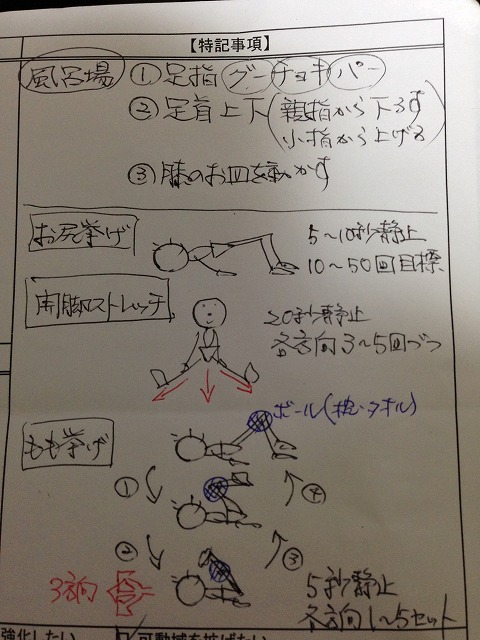 【特記事項】
風呂場 ① 足指 グー チョキ パー
② 足首上下 (親指から下ろす
小指から上げる)
③ 膝のお皿を動かす
お尻挙げ
5〜10秒静止
10〜50回目標
開脚ストレッチ
20秒静止
各方向3〜5回づつ
ボール(枕・タオル)
もも挙げ
①
④
②
③
3方向
5秒静止
各方向1〜5セット
強化したい
可動域を拡げたい